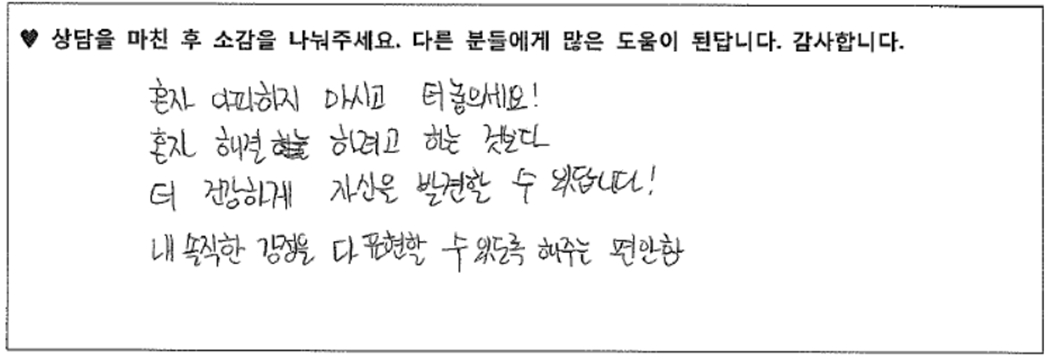 ♥ 상담을 마친 후 소감을 나눠주세요. 다른 분들에게 많은 도움이 된답니다. 감사합니다.
혼자 아파하지 마시고 터놓으세요!
혼자 해결 하려고 하는 것보다
더 건강하게 자신을 발견할 수 있답니다!
내 솔직한 감정을 다 표현할 수 있도록 해주는 편안함